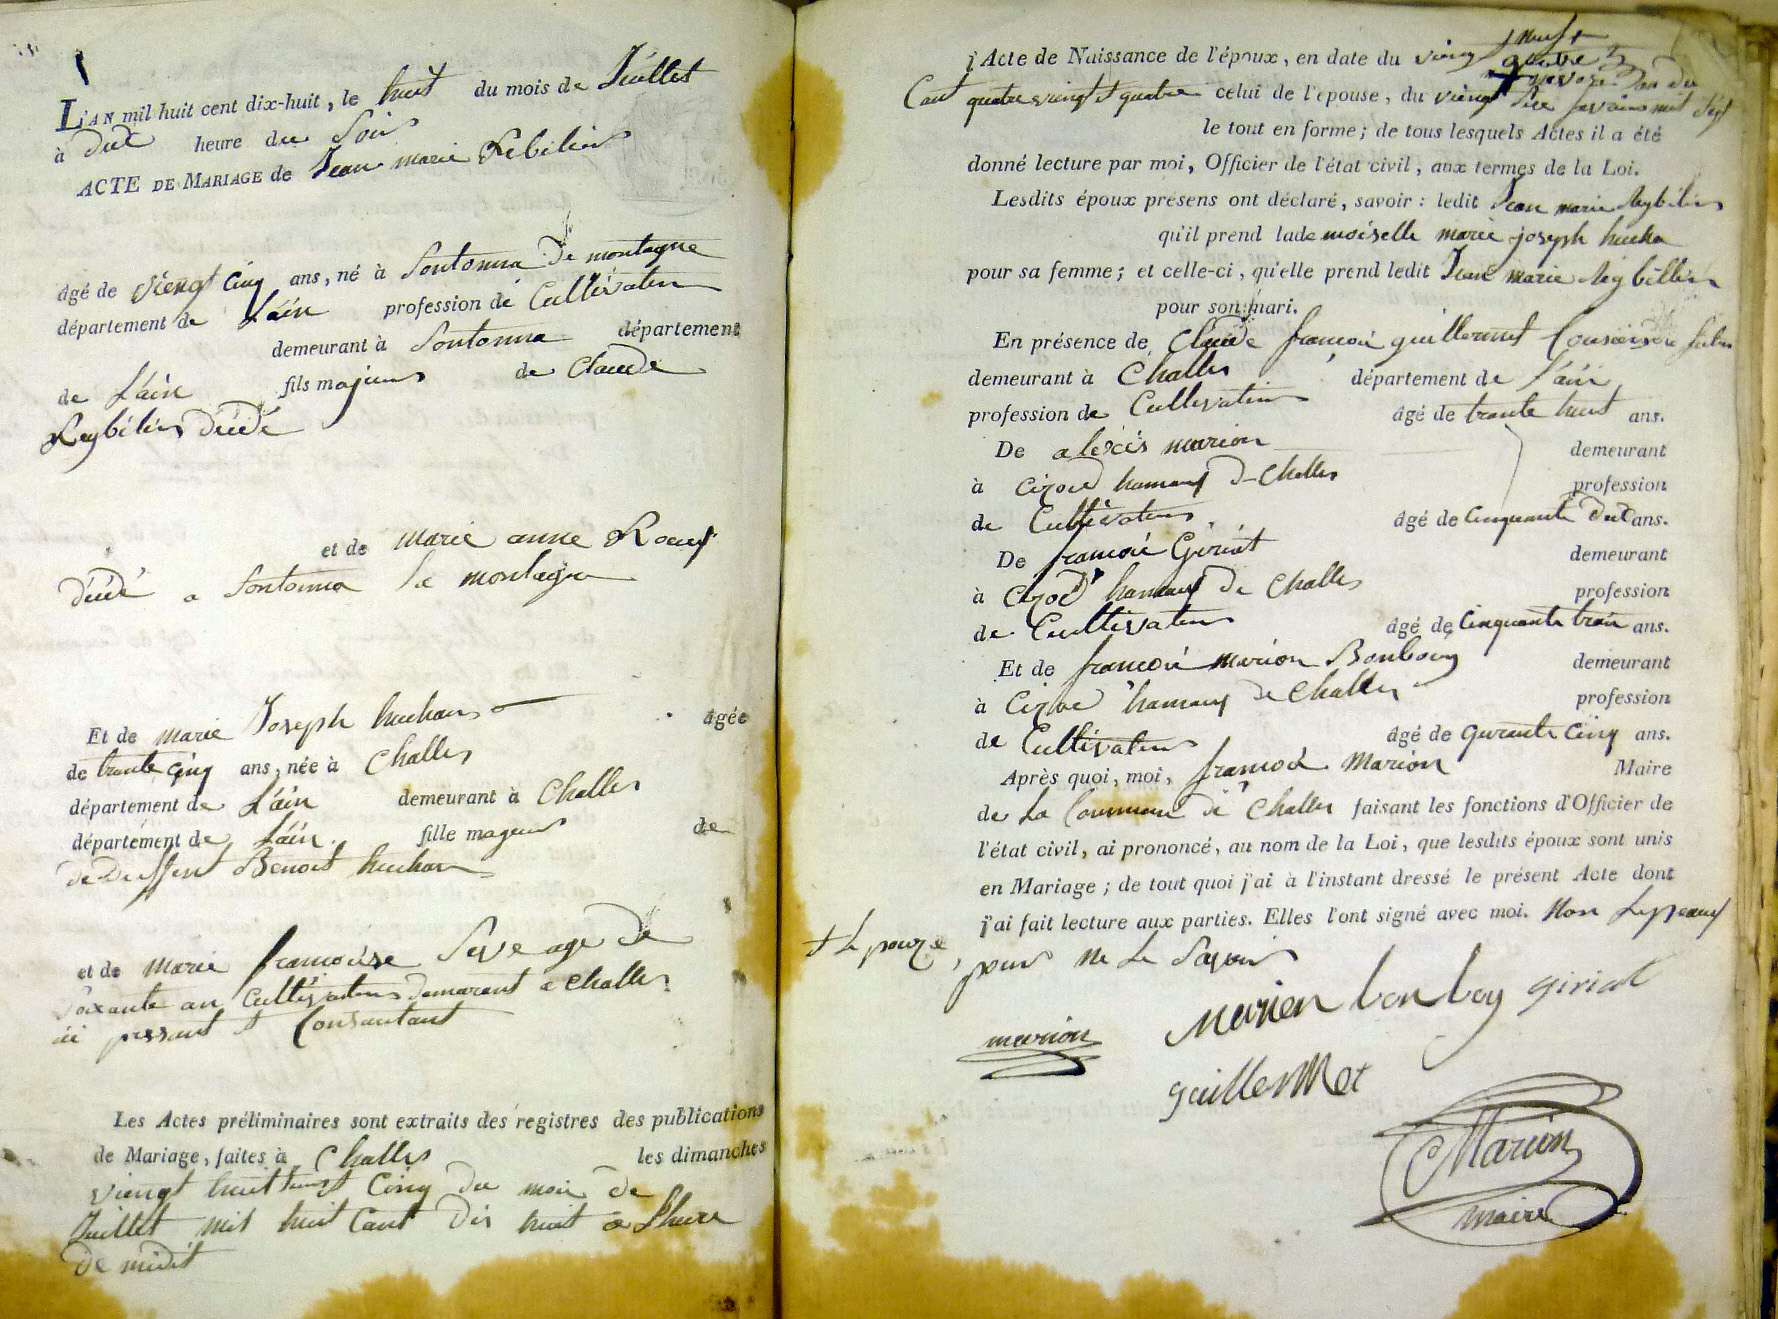 L'AN mil huit cent dix-huit, le huit du mois de Juillet
à dix heure du Soir
ACTE DE MARIAGE de Jean marie Rebilier
âgé de viengt cinq ans, né à Sontonna de montagne
département de L'ain profession de Cultivateur
demeurant à Sontonna département
de L'ain fils majeur de Claude
Reybilier décédé
et de marie anne
décédé a Sontonna la montagne
Et de marie Joseph huchon âgée
de trante cinq ans, née à Challes
département de L'ain demeurant à Challes
département de L'ain fille mageur de
de deffent Benoit huchon
et de marie francoise Seve age de
Soixante an Cultivateur demarant a Challes
ici pessant et Consantant
Les Actes préliminaires sont extraits des registres des publications
de Mariage, faites à Challes les dimanches
viengt huit Cinq du moi de
Juillet mil huit Cent dis huit a l'heure
de midit
l'Acte de Naissance de l'époux, en date du viengt
Cent quatre vingt et quatre celui de l'épouse, du viengt
le tout en forme; de tous lesquels Actes il a été
donné lecture par moi, Officier de l'état civil, aux termes de la Loi.
Lesdits époux présens ont déclaré, savoir: ledit Jean marie Reybilier
qu'il prend lade moiselle marie joseph huchon
pour sa femme; et celle-ci, qu'elle prend ledit Jean marie Reybillier
pour son mari.
En présence de Claude francoi guillermet
demeurant à Challes département de l'ain
profession de Cultivateur âgé de trante huit ans.
De alexis marion demeurant
à Cizod hamaux de Challes profession
de Cultivateur âgé de Cinquante dix ans.
De francoi Giriat demeurant
à Cizod hamaux de Challes profession
de Cultivateur âgé de Cinquante troi ans.
Et de francoi marion Bonboy demeurant
à Cizod hamaux de Challes profession
de Cultivateur âgé de qurante Cinq ans.
Après quoi, moi, francoi Marion Maire
de La Commune de Challes faisant les fonctions d'Officier de
l'état civil, ai prononcé, au nom de la Loi, que lesdits époux sont unis
en Mariage; de tout quoi j'ai à l'instant dressé le présent Acte dont
j'ai fait lecture aux parties. Elles l'ont signé avec moi. Non
pour ne le Savoir
marion Marion bonboy giriat
guillermet
Marion
maire